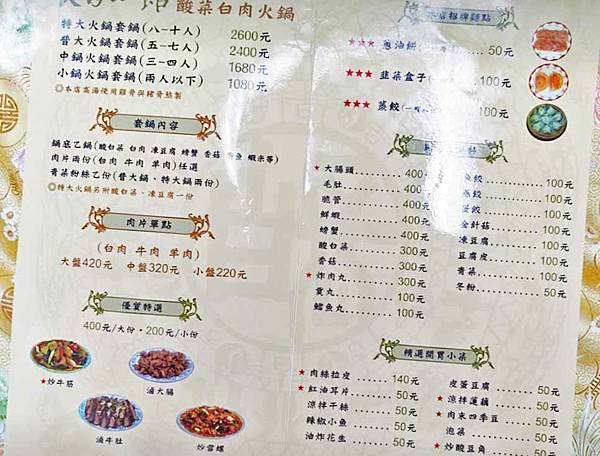 酸菜白肉火鍋
特大火鍋套鍋(八-十人) 2600元
普大火鍋套鍋(五-七人) 2400元
中鍋火鍋套鍋(三-四人) 1680元
小鍋火鍋套鍋(兩人以下) 1080元
◎本店高湯使用雞骨與豬骨熬製
套鍋內容
鍋底乙鍋(酸白菜 白肉 凍豆腐 螃蟹 香菇 魚 蝦米等)
肉片兩份(白肉 牛肉 羊肉)任選
青菜粉絲乙份(普大鍋、特大鍋兩份)
◎特大火鍋另附酸白菜、凍豆腐一份
肉片單點
(白肉 牛肉 羊肉)
大盤420元 中盤320元 小盤220元
優質特選
400元/大份·200元/小份
★炒牛筋
滷大腸
滷牛肚
炒雪螺
本店招牌麵點
★★★ 蔥油餅 50元
★★★ 韭菜盒子 100元
★★★ 蒸餃 100元
點
★大腸頭 400元
毛肚 400
脆管 400
鮮蝦 400
螃蟹 400
酸白菜 300元
香菇 300元
★炸肉丸 100元
貢丸 100元
鱈魚丸 100元
餃 100元
餃 100元
蛋餃 100元
金針菇 100元
凍豆腐 100元
豆腐皮 100元
青菜 100元
冬粉 50元
精選開胃小菜
★肉絲拉皮 140元
★紅油耳片 50元
涼拌干絲 50元
辣椒小魚 50元
油炸花生 50元
皮蛋豆腐 50元
★涼拌蓮藕 50元
★肉末四季豆 50元
泡菜 50元
★炒酸豆角 50元